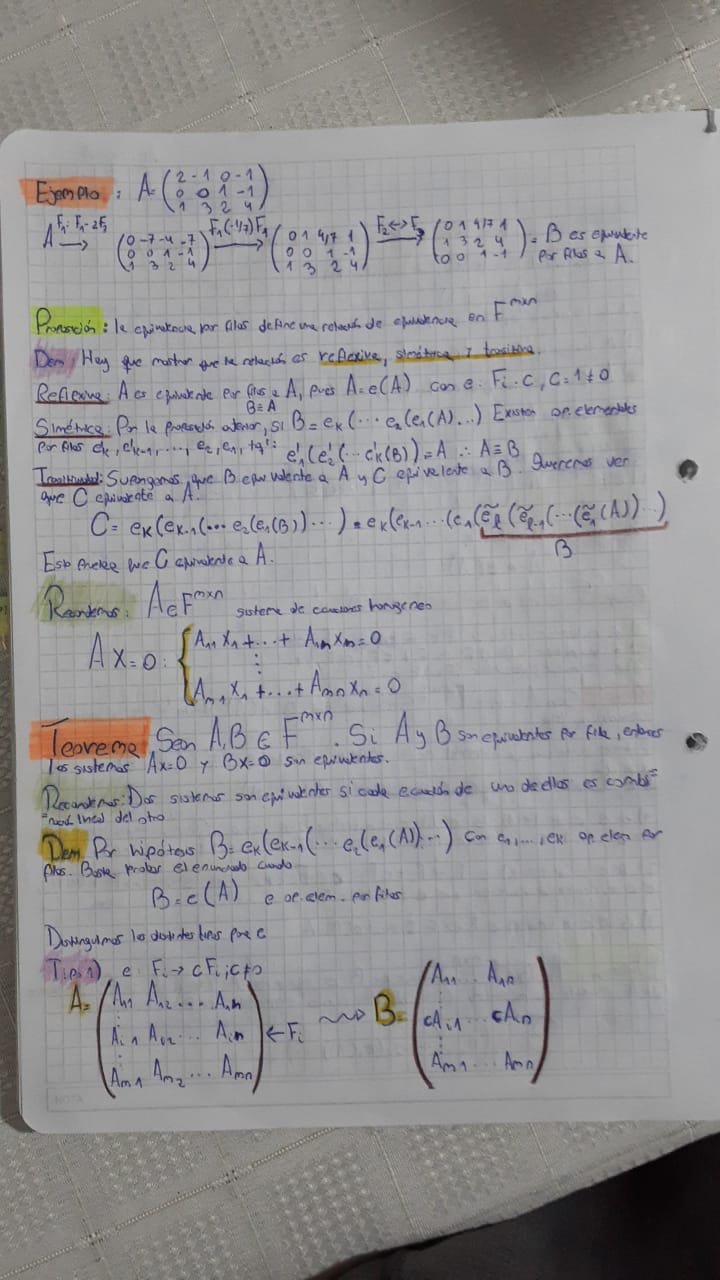 Ejemplo: A= (2 -1 0 -1
0 0 1 -1
1 3 2 4)
A F₁: F₁-2F₃ → (0 -7 -4 -7
0 0 1 -1
1 3 2 4) F₁(-1/7)F₁ → (0 1 4/7 1
0 0 1 -1
1 3 2 4) F₂↔F₃ → (0 1 4/7 1
1 3 2 4
0 0 1 -1) = B es equivalente
por filas a A.
Proposición: la equivalencia por filas define una relación de equivalencia en F^mxn
Dem/ Hay que mostrar que la relación es reflexiva, simétrica y transitiva.
Reflexiva: A es equivalente por filas a A, pues A=e(A) con e: Fi·c, c=1≠0
B≡A
Simétrica: Por la proposición anterior, si B=eₖ(··· e₂(e₁(A)...) Existen op. elementales
por filas eₖ, eₖ₋₁, ..., e₂, e₁, tq': e'₁(e'₂(··· e'ₖ(B))=A ∴ A≡B
Transitividad: Supongamos que B equivalente a A y C equivalente a B. Queremos ver
que C equivalente a A.
C= eₖ(eₖ₋₁(··· e₂(e₁(B))···) = eₖ(eₖ₋₁···(e₁(ẽₗ(ẽₗ₋₁(···(ẽ₁(A))···)
B
Esto prueba que C equivalente a A.
Recordemos: A∈F^mxn sistema de ecuaciones homogéneo
AX=0: { A₁₁X₁+...+ A₁ₙXₙ=0
⋮
Aₘ₁X₁+...+AₘₙXₙ=0
Teorema Sean A,B ∈ F^mxn. Si A y B son equivalentes por fila, entonces
los sistemas AX=0 y BX=0 son equivalentes.
Recordemos: Dos sistemas son equivalentes si cada ecuación de uno de ellos es combi=
=nación lineal del otro
Dem Por hipótesis B=eₖ(eₖ₋₁(··· e₂(e₁(A))···) con e₁,...,eₖ op. elem por
filas. Basta probar el enunciado cuando
B=e(A) e op. elem. por filas
Distinguimos los distintos tipos para e
Tipo 1) e: Fi→cFi; c≠0
A= (A₁₁ A₁₂ ... A₁ₙ
⋮
Aᵢ₁ Aᵢ₂ ... Aᵢₙ
⋮
Aₘ₁ Aₘ₂ ... Aₘₙ) ←Fi ⇝ B= (A₁₁ ... A₁ₙ
⋮
cAᵢ₁ ... cAᵢₙ
⋮
Aₘ₁ ... Aₘₙ)
NOTA